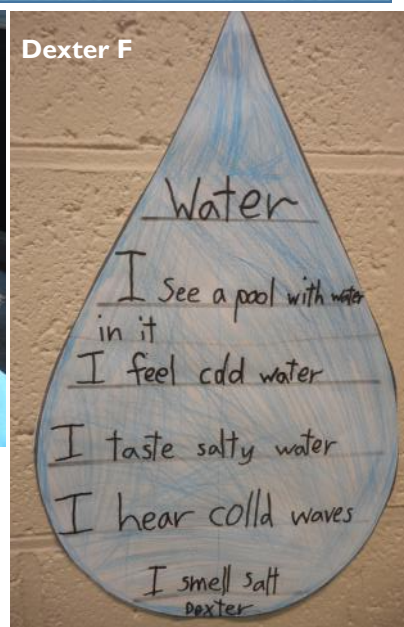 Dexter F
Water
I see a pool with water
in it
I feel cold water
I taste salty water
I hear colld waves
I smell salt
Dexter